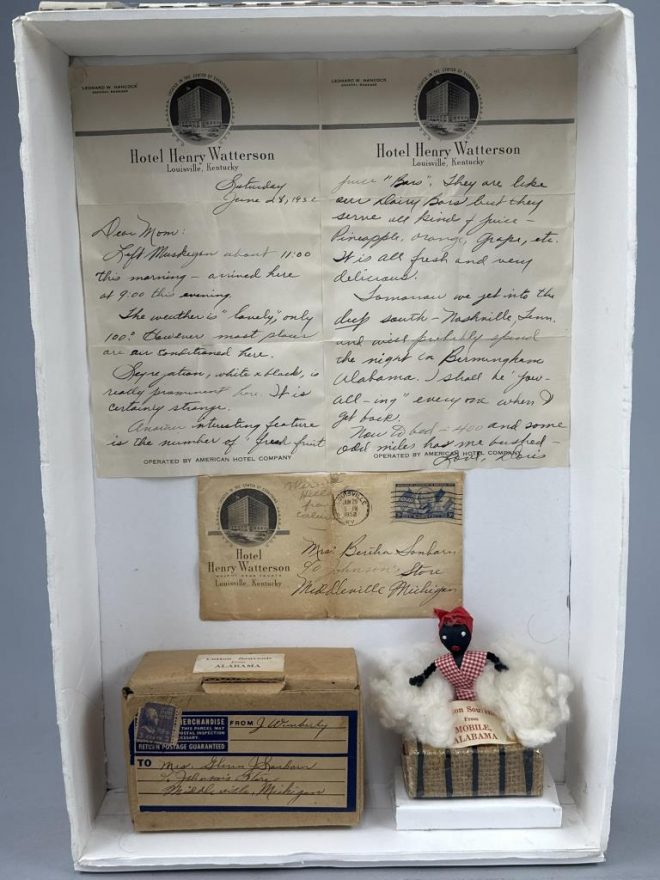 LEONARD W. HANCOCK
Hotel Henry Watterson
Louisville, Kentucky
Saturday
June 28, 195
Dear Mom:
Left Muskegon about 11:00
this morning - arrived here
at 9:00 this evening.
The weather is "lovely", only
100°. However most places
are air conditioned here.
Segregation, white & black, is
really prominent here. It is
certainly strange.
Another interesting feature
is the number of "fresh fruit
OPERATED BY AMERICAN HOTEL COMPANY
LEONARD W. HANCOCK
Hotel Henry Watterson
Louisville, Kentucky
juice "Bars". They are like
our Dairy Bars but they
serve all kind of juice -
Pineapple, orange, grape, etc.
It is all fresh and very
delicious.
Tomorrow we get into the
deep south - Nashville, Tenn.
and will probably spend
the night in Birmingham
Alabama. I shall be "you-
all-ing" everyone when I
get back.
Now to bed - 400 and some
odd miles has me bushed -
OPERATED BY AMERICAN HOTEL COMPANY
Love, Doris
Hotel
Henry Watterson
Louisville, Kentucky
LOUISVILLE
JUN 29
1952
KY.
Mrs. Bertha Sanborn
c/o Johnson's Store
Middleville Michigan
Cotton Souvenir
From
ALABAMA
MERCHANDISE
THIS PARCEL MAY
POSTAL INSPECTION
NECESSARY.
RETURN POSTAGE GUARANTEED
FROM J Wimberly
TO Mrs. Glenn Sanborn
Johnson's Store
Middleville, Michigan
From
MOBILE,
ALABAMA